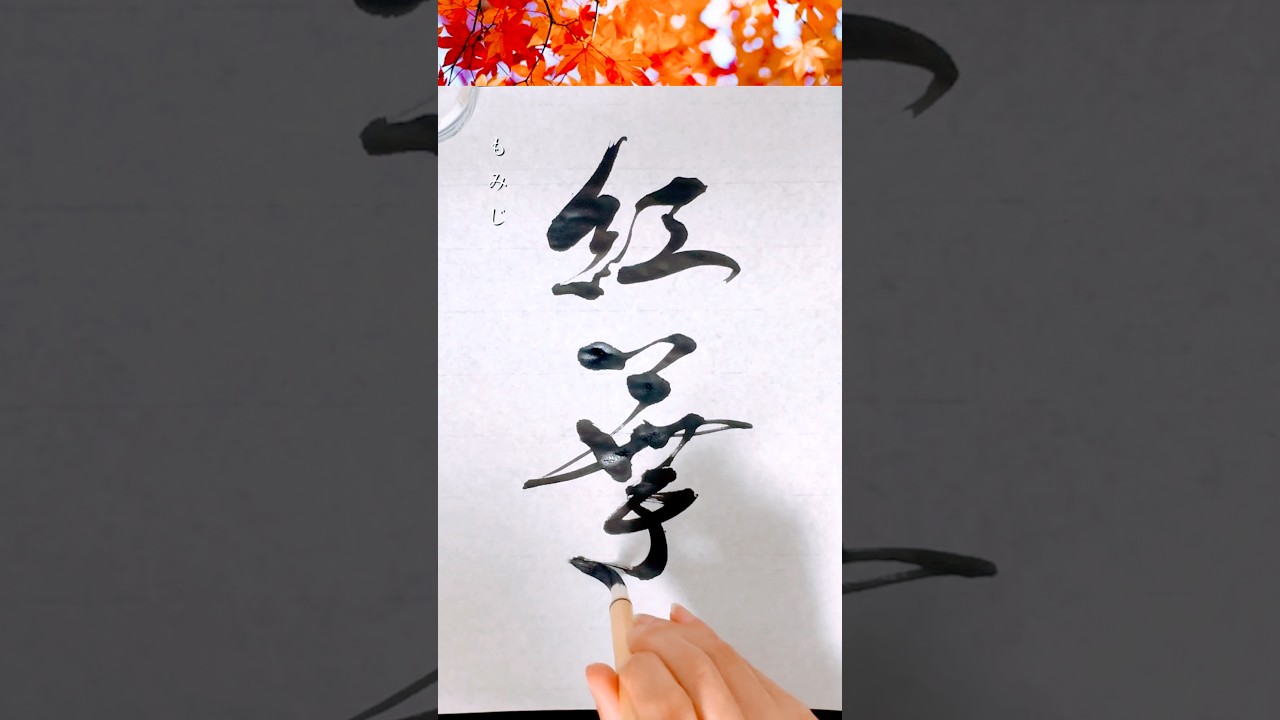 紅葉
もみじ